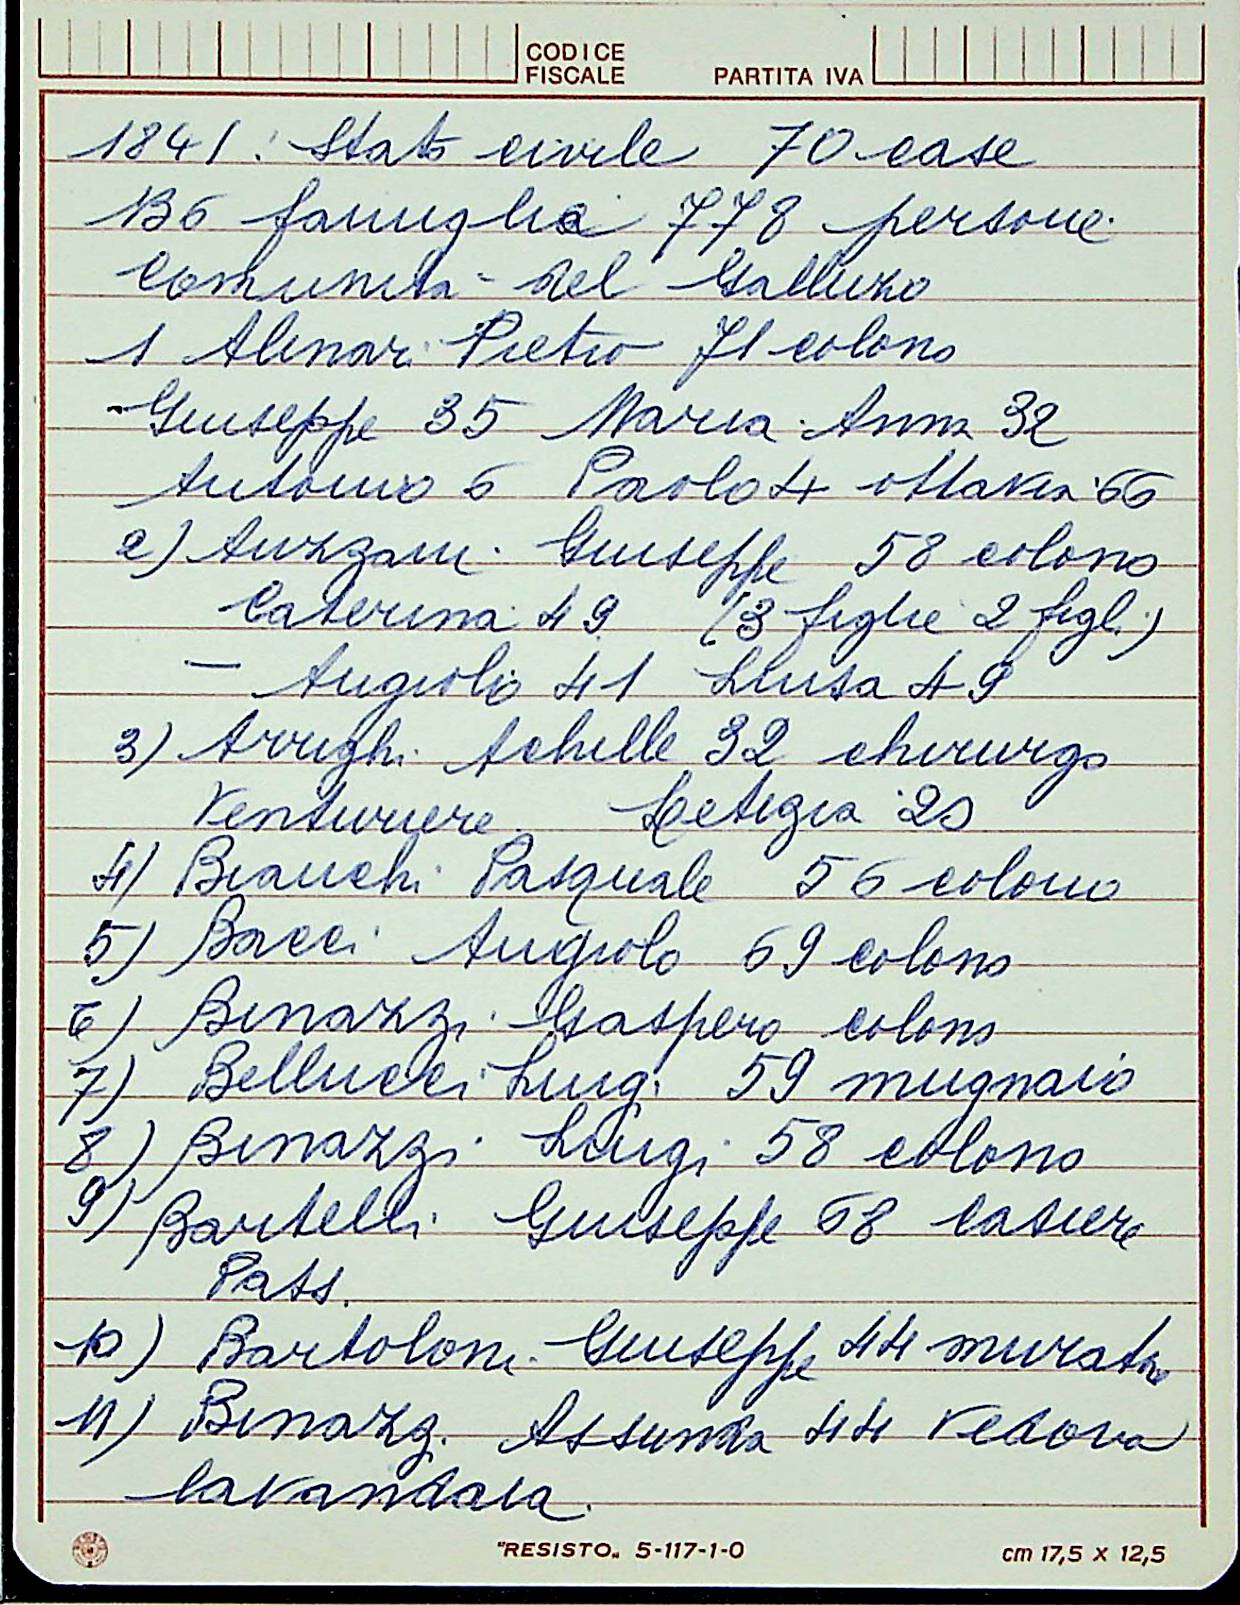 CODICE
FISCALE PARTITA IVA
1841: Stato civile 70 case
136 famiglie 778 persone
Comunità del Galluzzo
1 Alinari Pietro 71 colono
- Giuseppe 35 Maria Anna 32
Antonio 6 Paolo 4 Ottavia 66
2) Anzani Giuseppe 58 colono
Caterina 49 (3 figlie 2 figli)
— Angiolo 41 Luisa 49
3) Arrighi Achille 32 chirurgo
Venturiere Letizia 20
4) Bianchi Pasquale 56 colono
5) Bacci Angiolo 69 colono
6) Binazzi Gaspero colono
7) Bellucci Luigi 59 mugnaio
8) Binazzi Luigi 58 colono
9) Bartelli Giuseppe 68 casiere
Pass.
10) Bartoloni Giuseppe 44 muratore
11) Binazzi Assunta 44 vedova
lavandaia.
"RESISTO„ 5-117-1-0 cm 17,5 x 12,5